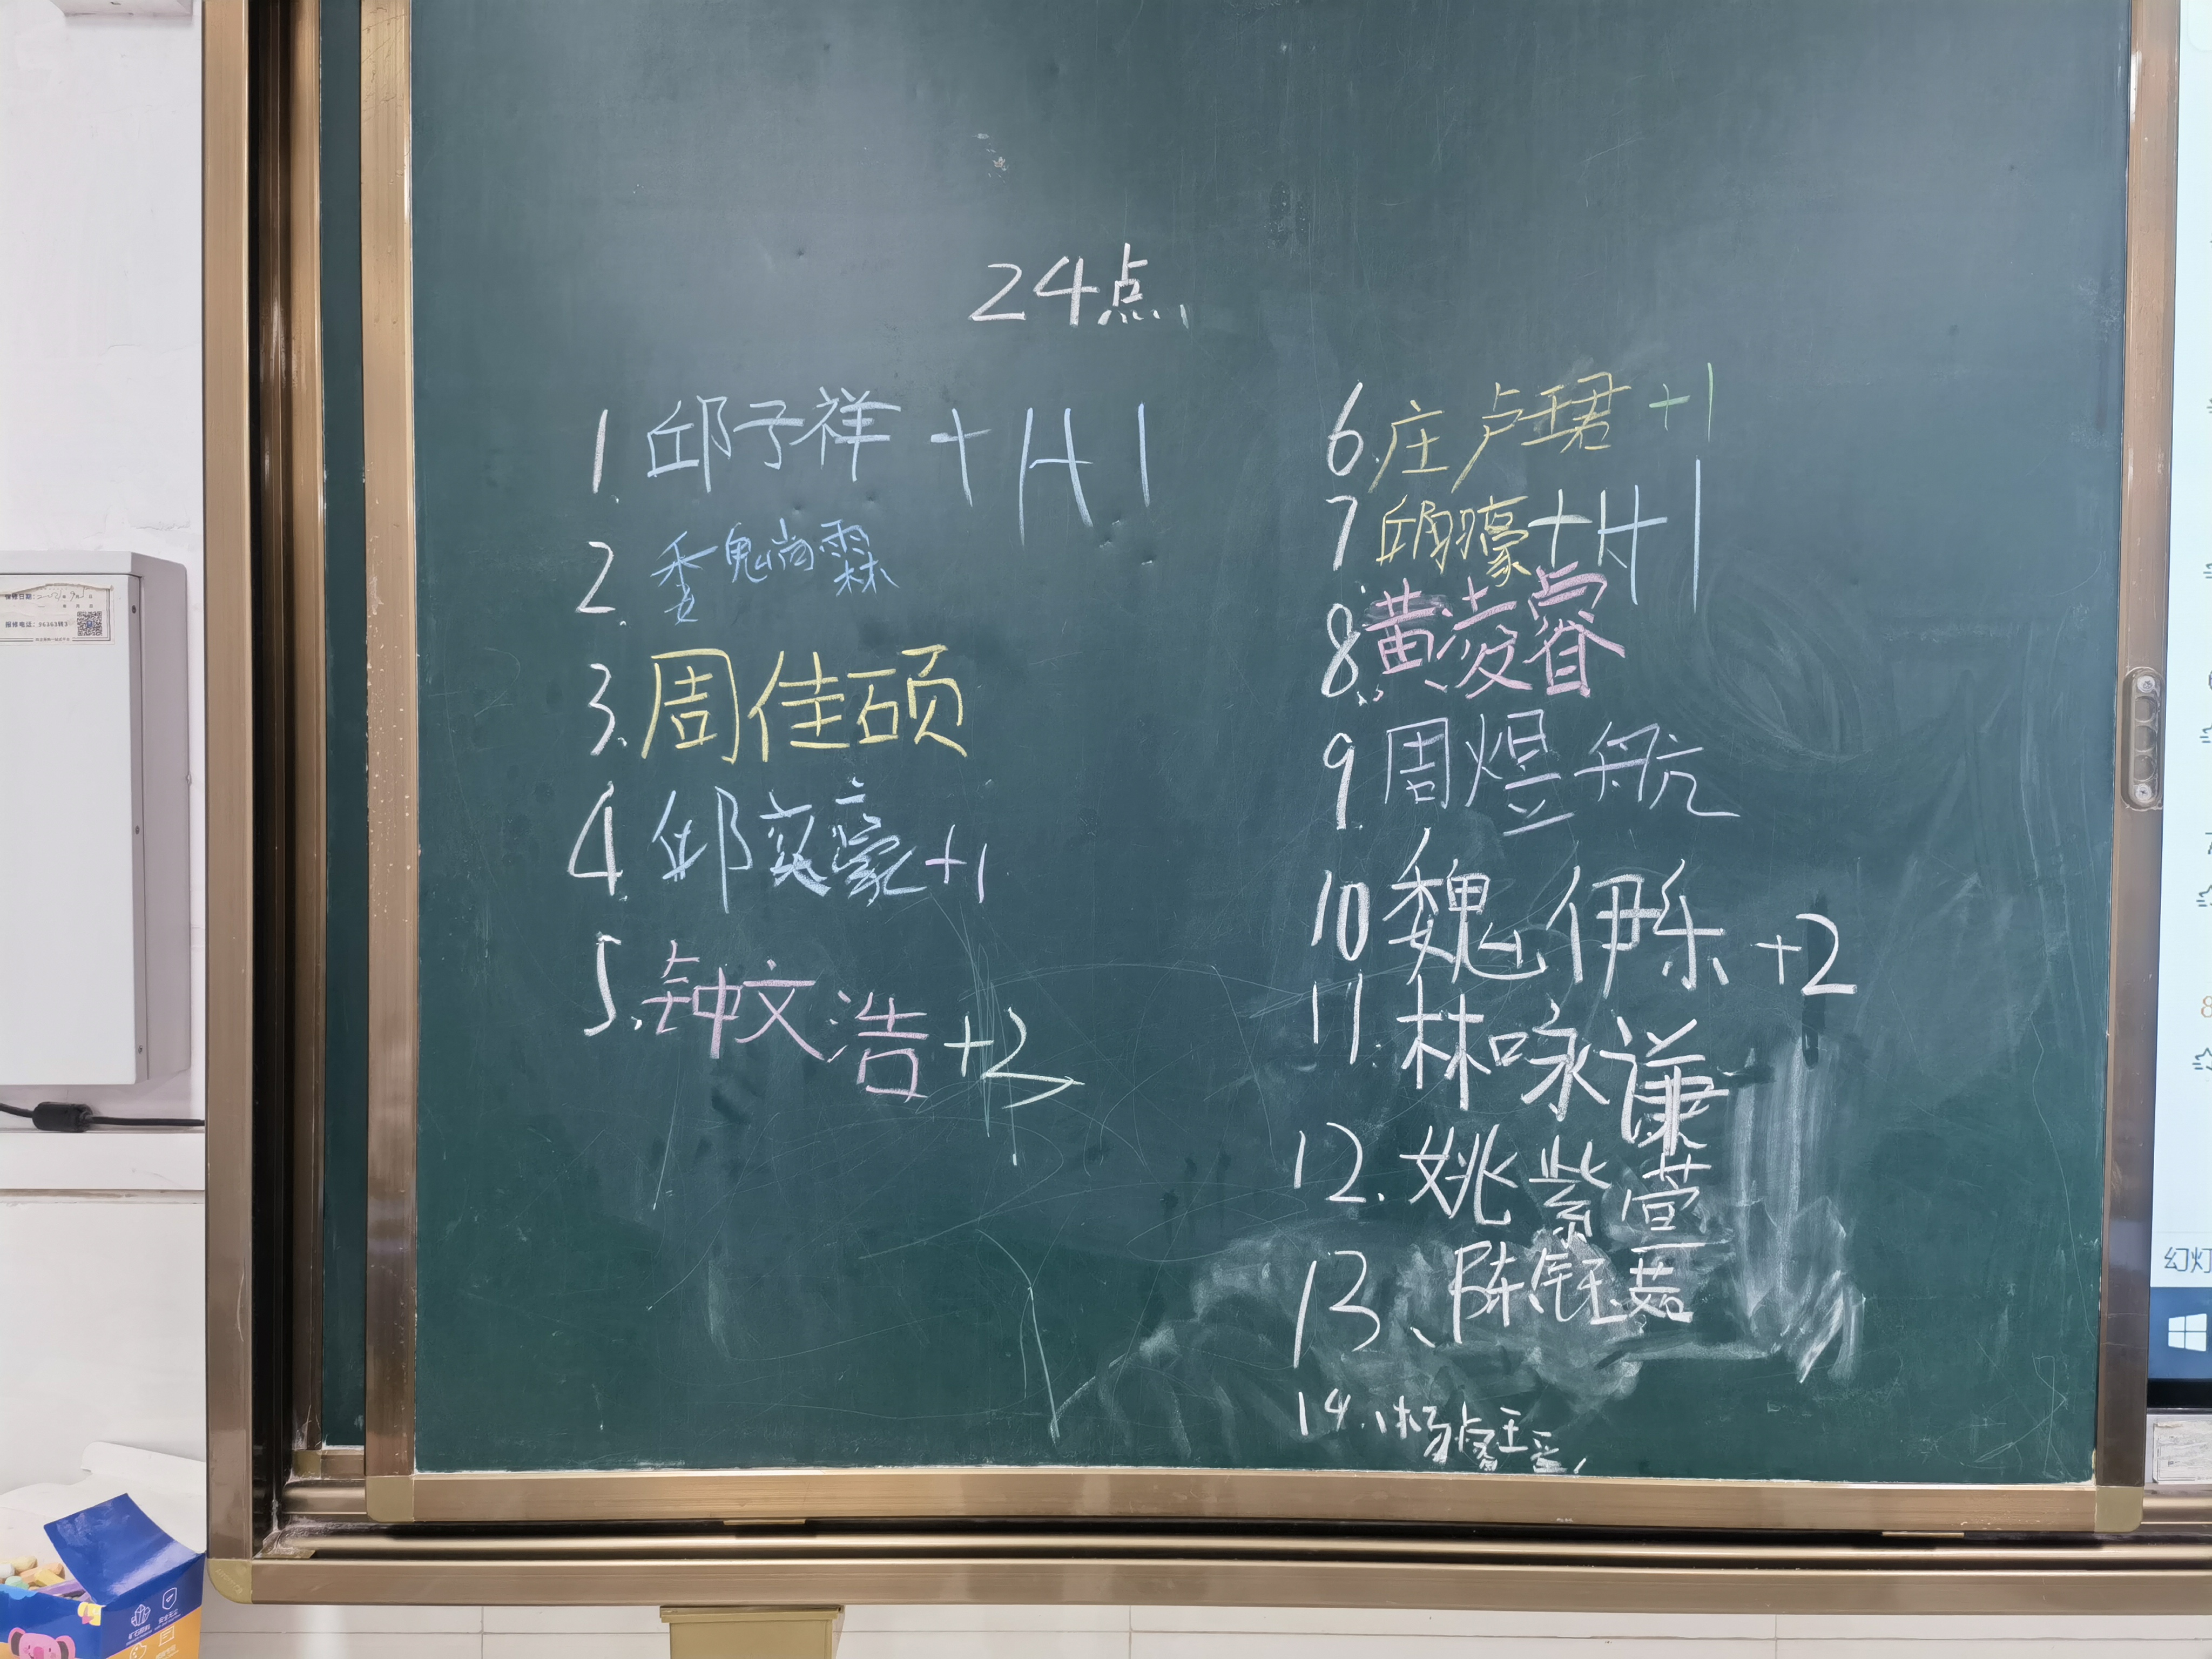 24点
1. 邱子祥 +1+1
2. 魏尚霖
3. 周佳硕
4. 邱奕豪+1
5. 钟文浩+2
6. 庄卢珺 +1
7 邱翊濠+1+1
8. 黄凌睿
9. 周煜航
10 魏伊乐 +2
11. 林咏谦
12. 姚紫萱
13、陈钰茹
14.
报修电话：
幻灯